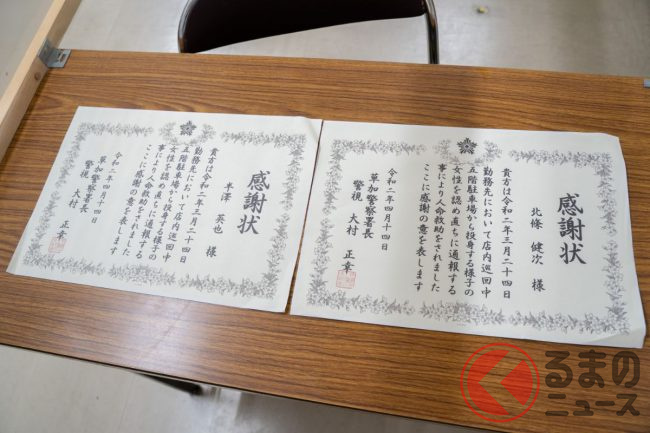 感謝状
北條 健次 様
貴方は令和二年三月二十四日
勤務先において店内巡回中
五階駐車場から投身する様子の
女性を認め直ちに通報する
事により人命救助をされました
ここに感謝の意を表します
令和二年四月十四日
草加警察署長
警視 大村 正幸
感謝状
半澤 英也 様
貴方は令和二年三月二十四日
勤務先において店内巡回中
五階駐車場から投身する様子の
女性を認め直ちに通報する
事により人命救助をされました
ここに感謝の意を表します
令和二年四月十四日
草加警察署長
警視 大村 正幸
くるまのニュース